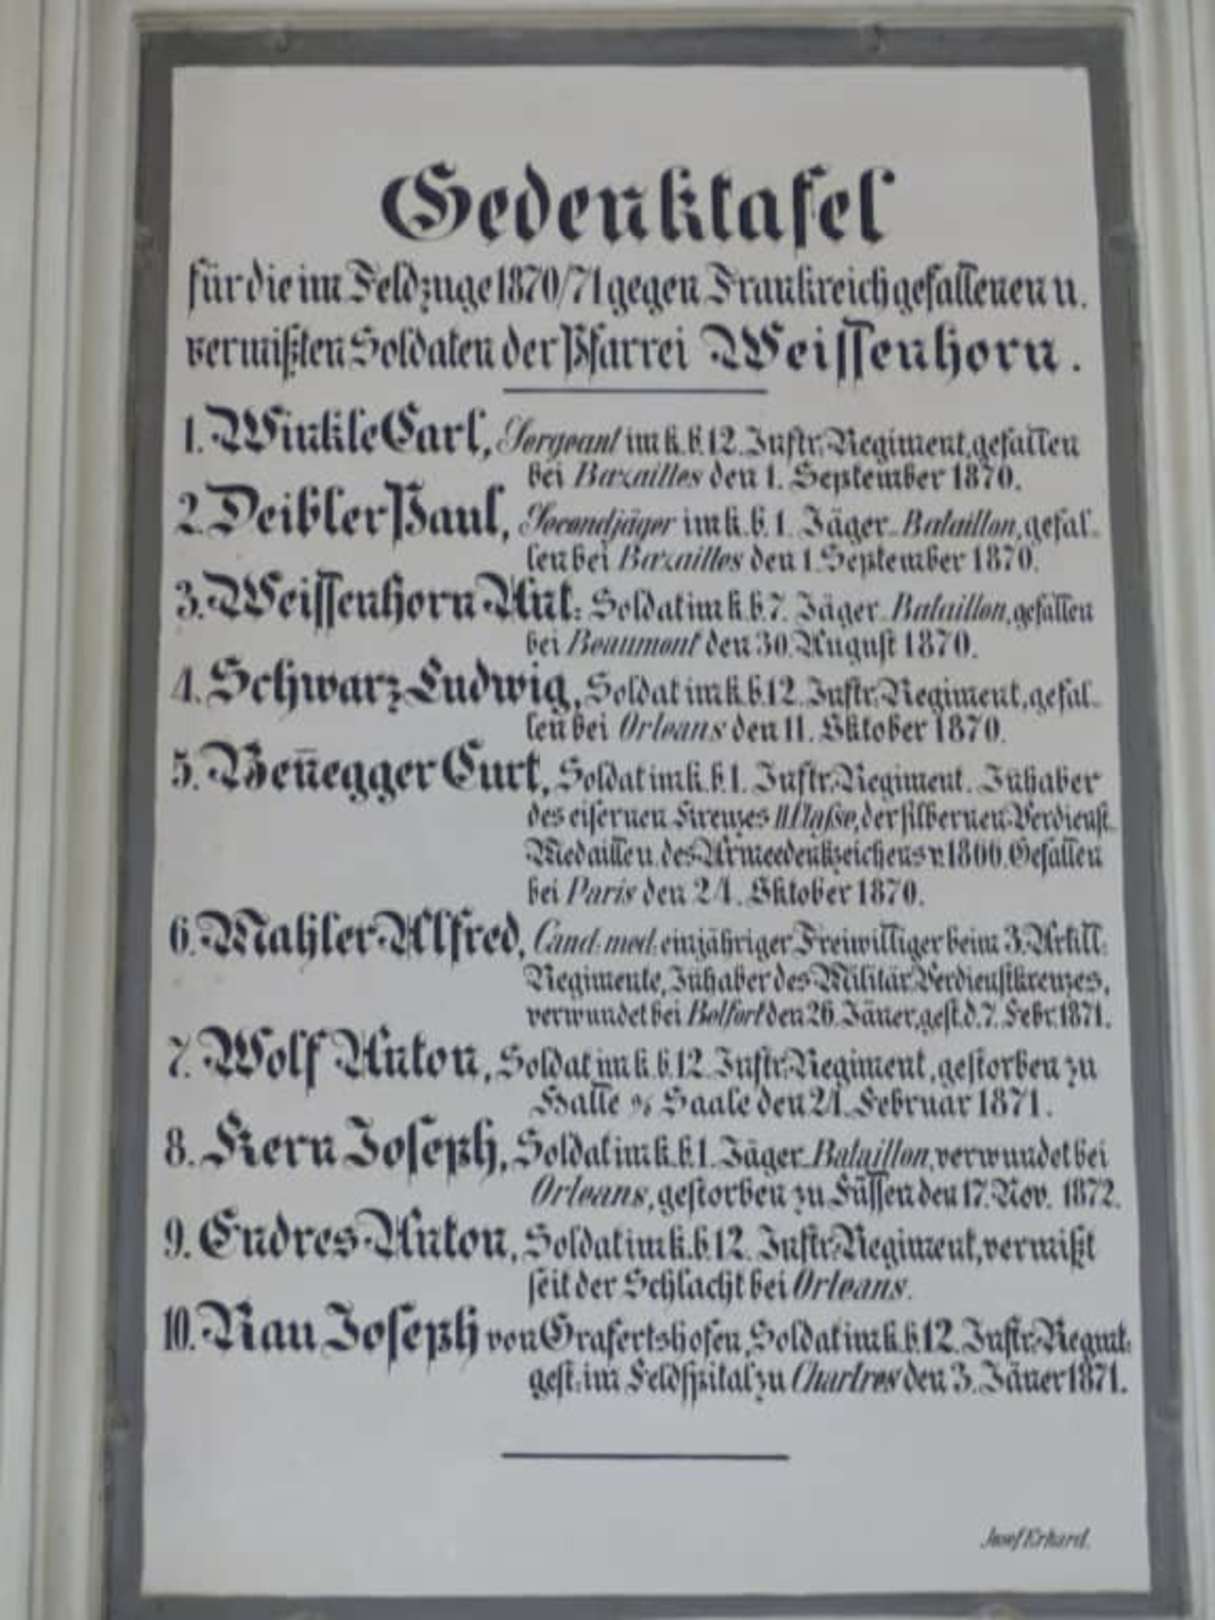 Gedenktafel
für die im Feldzuge 1870/71 gegen Frankreich gefallenen u.
vermißten Soldaten der Pfarrei Weissenhorn.
1. Winkle Carl, Sergeant im k. b. 12. Inftr. Regiment, gefallen
bei Bazailles den 1. September 1870.
2. Deibler Paul, Secondjäger im k. b. 1. Jäger-Bataillon, gefal-
len bei Bazailles den 1. September 1870.
3. Weissenhorn Ant: Soldat im k. b. 7. Jäger-Bataillon, gefallen
bei Beaumont den 30. August 1870.
4. Schwarz Ludwig, Soldat im k. b. 12. Inftr. Regiment, gefal-
len bei Orleans den 11. Oktober 1870.
5. Wen̅egger Curt, Soldat im k. b. 1. Inftr. Regiment. Inhaber
des eisernen Kreuzes II. Classe, der silbernen Verdienst-
Medaille u. des Armeedenkzeichens v. 1866. Gefallen
bei Paris den 24. Oktober 1870.
6. Mahler Alfred, Cand: med: einjähriger Freiwilliger beim 3. Artill:
Regimente, Inhaber des Militär Verdienstkreuzes,
verwundet bei Belfort den 26. Jäner, gest. d. 7. Febr. 1871.
7. Wolf Anton, Soldat im k. b. 12. Inftr. Regiment, gestorben zu
Halle a/s Saale den 24. Februar 1871.
8. Kern Joseph, Soldat im k. b. 1. Jäger-Bataillon, verwundet bei
Orleans, gestorben zu Füssen den 17. Nov. 1872.
9. Endres Anton, Soldat im k. b. 12. Inftr. Regiment, vermißt
seit der Schlacht bei Orleans.
10. Rau Joseph von Grafertshofen, Soldat im k. b. 12. Inftr. Regmt:
gest: im Feldspital zu Chartres den 3. Jäner 1871.
Josef Erhard.